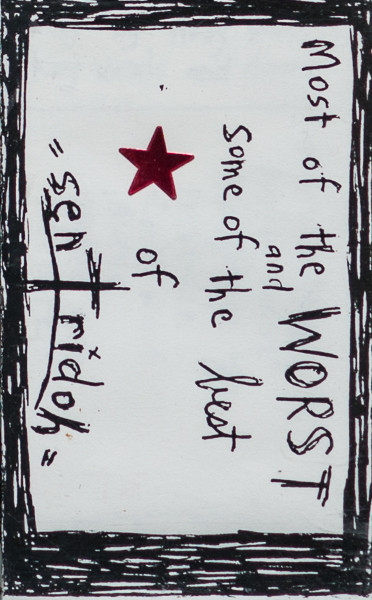 Most of the WORST
and
some of the best
of
"sentridoh"